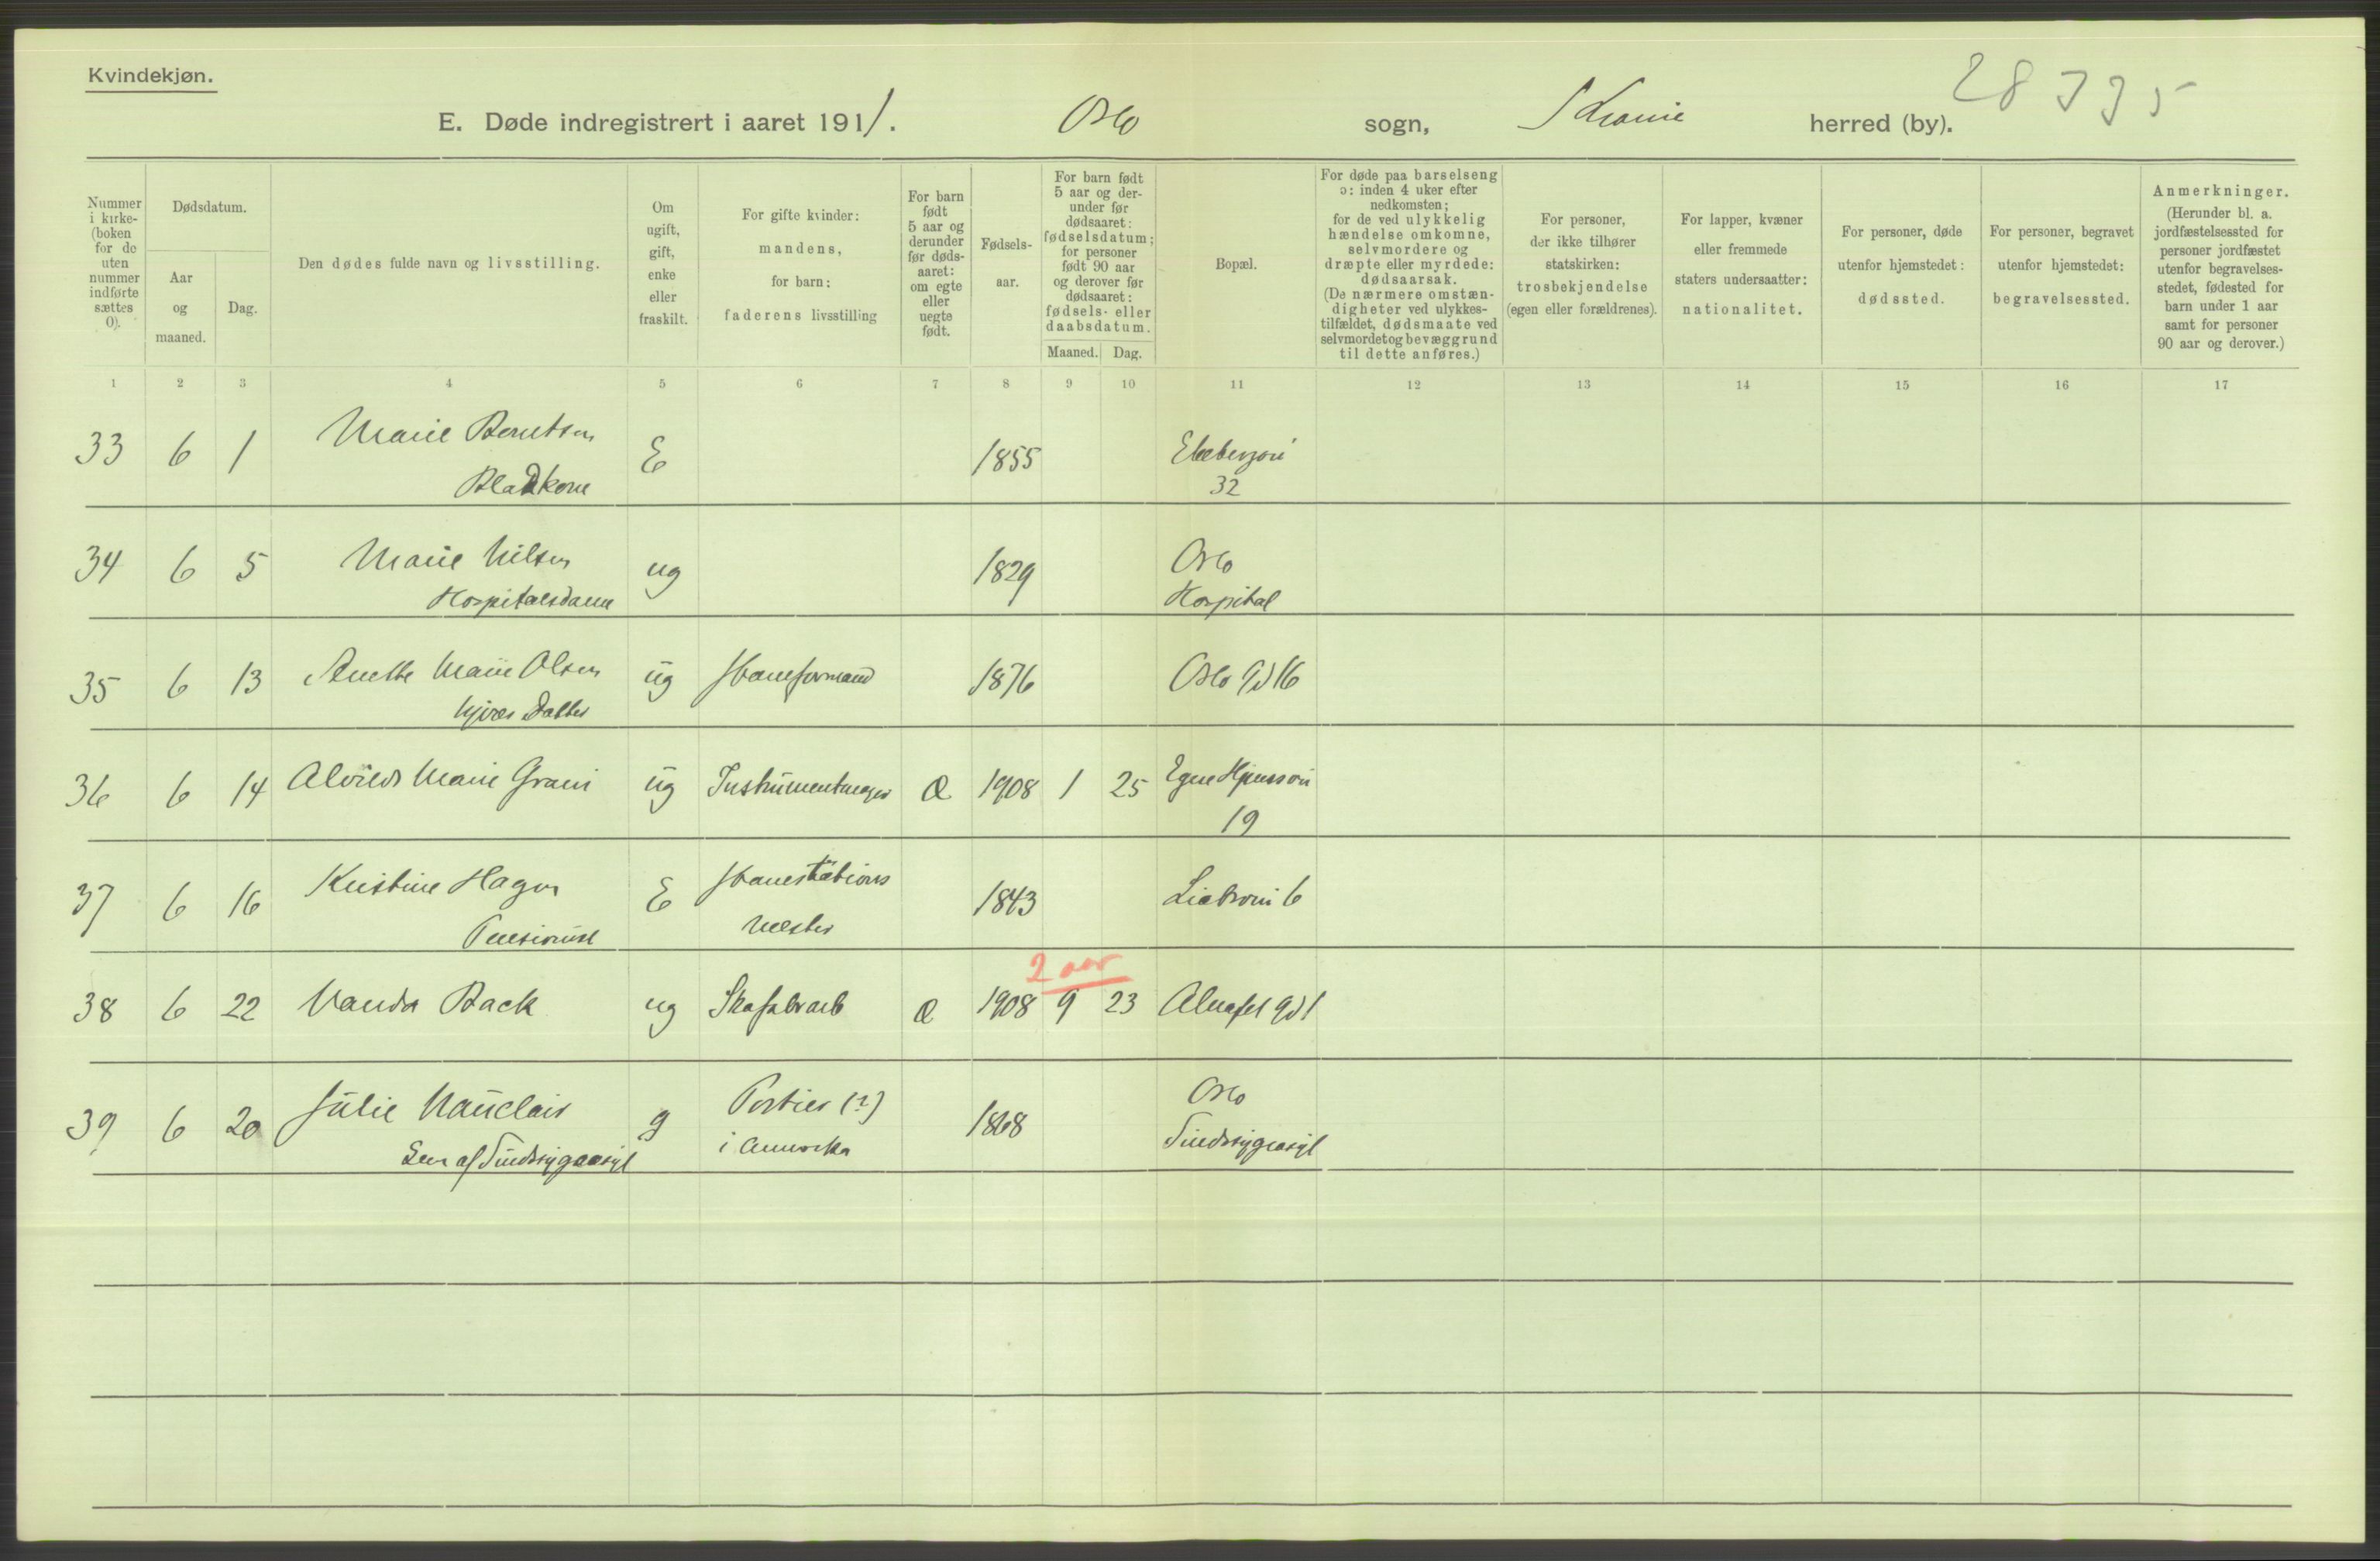 Kvindekjøn.
28 335
E. Døde indregistrert i aaret 1911. Oslo sogn, Kr.ania herred (by).
Nummer i kirke- (boken for de uten nummer indførte sættes 0).
Dødsdatum.
Aar og maaned.
Dag.
Den dødes fulde navn og livsstilling.
Om ugift, gift, enke eller fraskilt.
For gifte kvinder: mandens, for barn: faderens livsstilling
For barn født 5 aar og derunder før døds- aaret: om egte eller uegte født.
Fødsels- aar.
For barn født 5 aar og der- under før dødsaaret: fødselsdatum; for personer født 90 aar og derover før dødsaaret: fødsels- eller daabsdatum.
Maaned. Dag.
Bopæl.
For døde paa barselseng ɔ: inden 4 uker efter nedkomsten; for de ved ulykkelig hændelse omkomne, selvmordere og dræpte eller myrdede: dødsaarsak. (De nærmere omstæn- digheter ved ulykkes- tilfældet, dødsmaate ved selvmordet og bevæggrund til dette anføres.)
For personer, der ikke tilhører statskirken: trosbekjendelse (egen eller forældrenes).
For lapper, kvæner eller fremmede staters undersaatter: nationalitet.
For personer, døde utenfor hjemstedet: dødssted.
For personer, begravet utenfor hjemstedet: begravelsessted.
Anmerkninger. (Herunder bl. a. jordfæstelsessted for personer jordfæstet utenfor begravelses- stedet, fødested for barn under 1 aar samt for personer 90 aar og derover.)
1 2 3 4 5 6 7 8 9 10 11 12 13 14 15 16 17
33 6 1 Marie Berntsen E 1855 Ekebergvei
Bladkone 32
34 6 5 Marie Nilsen ug 1829 Oslo
Hospitalsdame Hospital
35 6 13 Anette Marie Olsen ug 1876 Oslo gd 16
hjvær Datter
36 6 14 Alvilds Marie ug Instrumentmager Æ 1908 1 25 Egne Hjemsvei
19
37 6 16 Kristine Hagen E Banestations 1843 Liabrovei 6
Pensionist Mester
2 aar
38 6 22 Wanda Back ug Skofabrarb Æ 1908 9 23 Alnafet gd 1
39 6 20 Julie Mauclair g Portier (?) 1868 Oslo
Lem af Sindssygeasyl i Amerika Sindssygeasyl